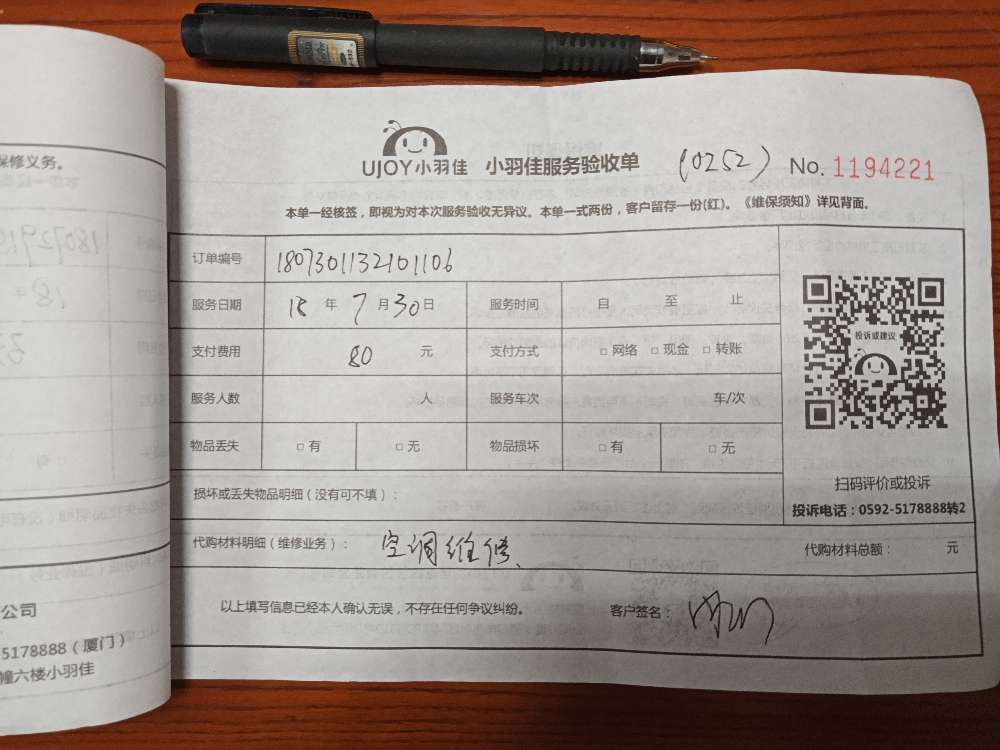 保修义务。
公司
5178888（厦门）
幢六楼小羽佳
UJOY小羽佳 小羽佳服务验收单 (0252) No. 1194221
本单一经核签，即视为对本次服务验收无异议。本单一式两份，客户留存一份(红)。《维保须知》详见背面。
订单编号 1807301132101106
服务日期 18 年 7 月 30 日 服务时间 自 至 止
支付费用 80 元 支付方式 □ 网络 □ 现金 □ 转账
服务人数 人 服务车次 车/次
物品丢失 □ 有 □ 无 物品损坏 □ 有 □ 无
投诉或建议
扫码评价或投诉
投诉电话：0592-5178888转2
损坏或丢失物品明细（没有可不填）：
代购材料明细（维修业务）： 空调维修、 代购材料总额： 元
以上填写信息已经本人确认无误，不存在任何争议纠纷。 客户签名：